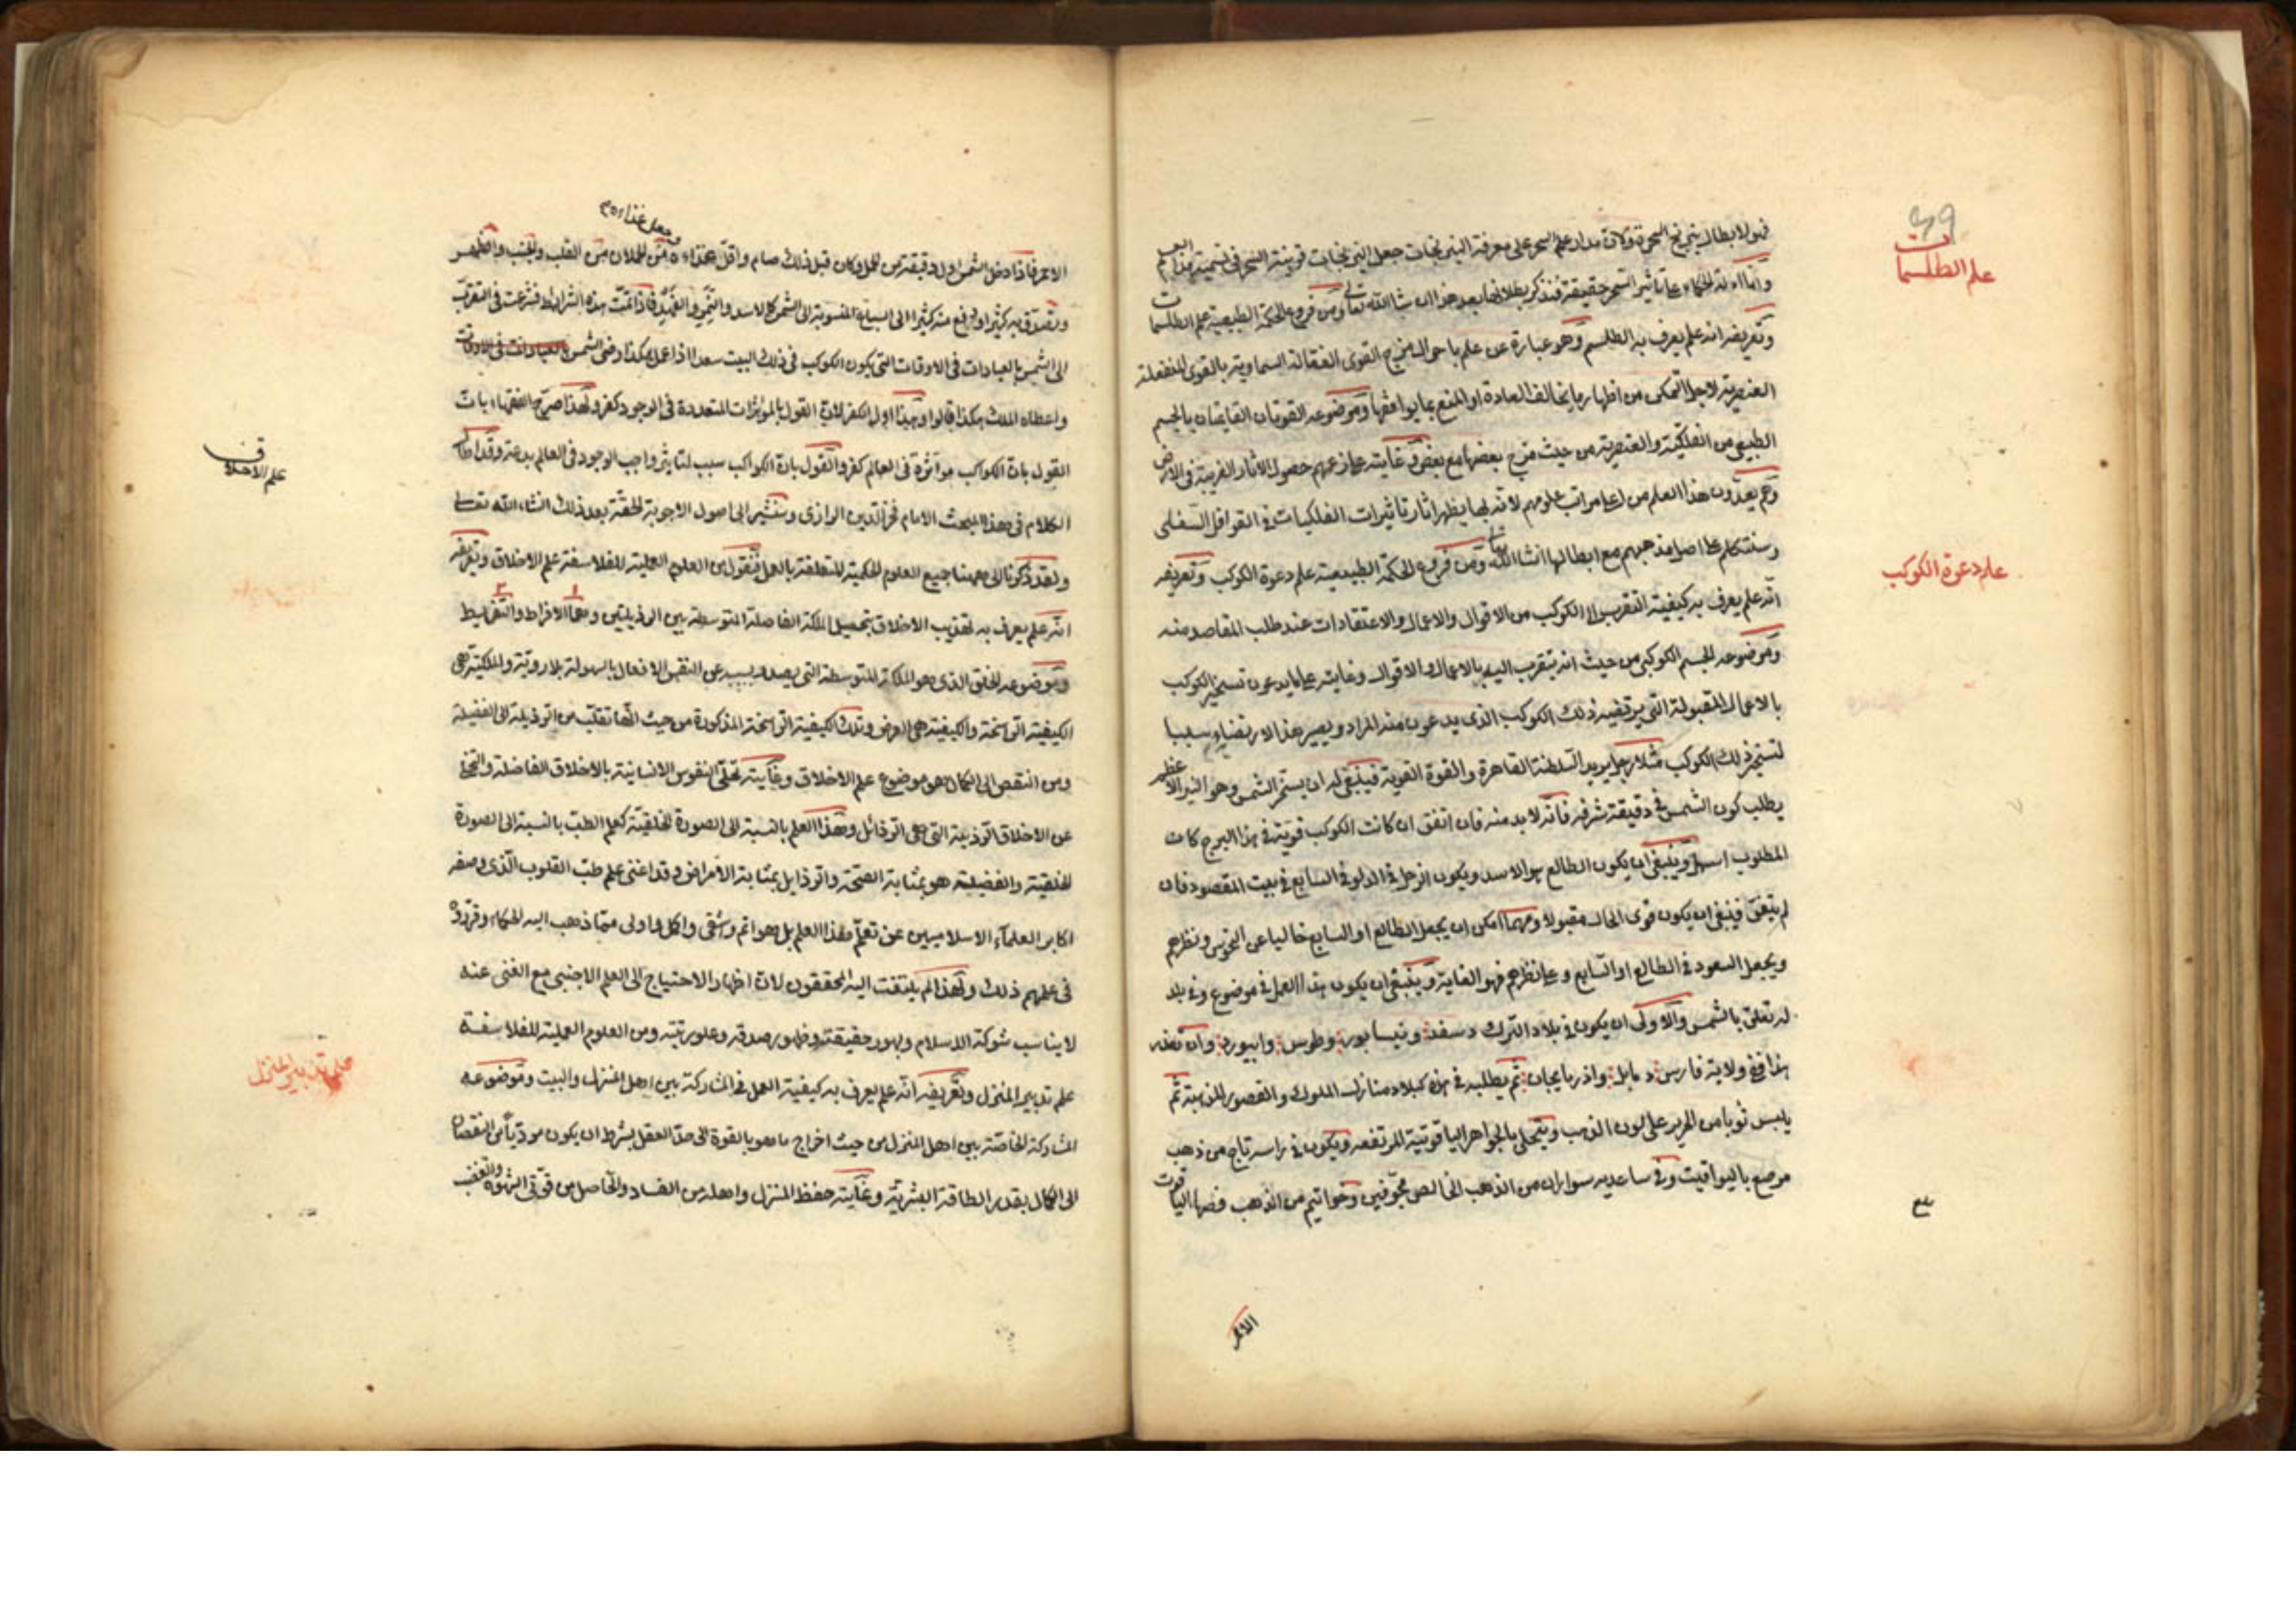 ٤٩
علم الطلسمات
فهو لابطال نيرنج السحرة ولان مدار علم السحر على معرفة النيرنجات جعل النيرنجات قرينة السحر فى تسمية هذا العلم
واما ادلة الحكماء على تاثير السحر حقيقة فنذكر بطلانها بعد هذا ان شا الله تعالى ومن فروع الحكمة الطبيعية علم الطلسمات
وتعريفه انه علم يعرف به الطلسم وهو عبارة عن علم باحوال مزج القوى الفعالة السماوية بالقوى المنفعلة
العنصرية لاجل التمكن من اظهار ما يخالف العادة او المنع مما يوافقها وموضوعه القوتان القايمتان بالجسم
الطبيعى من الفلكية والعنصرية من حيث مزج بعضها مع بعض وغايته على زعمهم حصول الاثار الغريبة فى الارض
وهم يعدون هذا العلم من اعلى مراتب علومهم لانه بها يظهر اثار تاثيرات الفلكيات فى القوابل السفلى
وسنتكلم على اصل مذهبهم مع ابطالها انشا الله تعالى ومن فروع الحكمة الطبيعية علم دعوة الكوكب وتعريفه
علم دعوة الكوكب
انه علم يعرف به كيفية التقرب الى الكوكب من الاقوال والاعمال والاعتقادات عند طلب المقاصد منه
وموضوعه الجسم الكوكبى من حيث انه يتقرب اليه بالاعمال والاقوال وغايته على ما يدعون تسخير الكوكب
بالاعمال المقبولة التى يرتضيه ذلك الكوكب الذى يدعون منه المراد ويصير هذا الارتضاء سببا
لتسخير ذلك الكوكب مثلا رجل يريد السلطنة القاهرة والقوة القوية فينبغى له ان يسخر الشمس وهو النير الاعظم
يطلب كون الشمس فى دقيقة شرفه فانه لا بد منه فان اتفق ان كانت الكوكب قوية فى هذا البرج كان
المطلوب اسهل وينبغى ان يكون الطالع هو الاسد ويكون الزحل فى الدلو فى السابع فى بيت المقصود فان
لم يتفق فينبغى ان يكون قوى الحال مقبولا ومهما امكن ان يجعل الطالع او السابع خاليا عن النحوس ونظرهم
ويجعل السعود فى الطالع او السابع وعلى نظرهم فهو الغاية وينبغى ان يكون هذا العمل فى موضوع وفى بلد
له تعلق بالشمس والاولى ان يكون فى بلاد الترك وسغد ونيسابور وطوس وابيورد وان تعذر
هذا ففى ولاية فارس وبابل واذربايجان ثم يطلبه فى هذه البلاد منازل الملوك والقصور المذهبة ثم
يلبس ثوبا من الحرير على لون الذهب ويتحلى بالجواهر الياقوتية المرتفعة ويكون فى راسه تاج من ذهب
مرصع باليواقيت وفى ساعديه سواران من الذهب الخالص مجوفين وخواتيم من الذهب فصها الياقوت
الاحمر
وجعل غذاءه
الاحمر فاذا دخل الشمس اول دقيقة من الحمل وكان قبل ذلك صام واقل غذاءه من الحملان من القلب والجنب والظهر
ويتصدق به كثيرا ويدفع منه كثيرا الى السباع المنسوبة الى الشمس كالاسد والنمر والفهد فاذا تمت هذه الشرايط فشرعت فى التقرب
الى الشمس بالعبادات فى الاوقات التى يكون الكوكب فى ذلك البيت سعدا اذا عمل هكذا رضى الشمس بالعبادات فى الاوقات
واعطاه الملك هكذا قالوا وهذا اول الكفر لان القول بالمؤثرات المتعددة فى الوجود كفر ولهذا صرح الفقهاء بان
القول بان الكواكب مؤثرة فى العالم كفر والقول بان الكواكب سبب لتاثير واجب الوجود فى العالم بدعة وقد اطال
الكلام فى هذا المبحث الامام فخر الدين الرازى وسنشير الى اصول الاجوبة الحقة بعد ذلك انشاء الله تعالى
علم الاخلاق
ولقد ذكرنا الى ههنا جميع العلوم الحكمية المتعلقة بالعمل فنقول من العلوم العملية للفلاسفة علم الاخلاق وتعريفه
انه علم يعرف به تهذيب الاخلاق بتحصيل الملكة الفاضلة المتوسطة بين الرذيلتين وهما الافراط والتفريط
وموضوعه الخلق الذى هو الملكة المتوسطة التى يصدر بسببه عن النفس الافعال بالسهولة بلا روية والملكية هى
الكيفية الراسخة والكيفية هى العرض وتلك الكيفية الراسخة المذكورة من حيث انها تقلب من الرذيلة الى الفضيلة
ومن النقص الى الكمال هو موضوع علم الاخلاق وغايته تحلى النفوس الانسانية بالاخلاق الفاضلة والتخلى
عن الاخلاق الرذيلة التى هى الرذائل وهذا العلم بالنسبة الى الصورة الخلقية كعلم الطب بالنسبة الى الصورة
الخلقية والفضيلة هو بمثابة الصحة والرذايل بمثابة الامراض وقد اغنى علم طب القلوب الذى وصفه
اكابر العلماء الاسلاميين عن تعلم هذا العلم بل هو اتم وشفى واكل واولى مما ذهب اليه الحكماء وقرروه
فى علمهم ذلك ولهذا لم يلتفت اليه المحققون لان اظهار الاحتياج الى العلم الاجنبى مع الغنى عنه
لا يناسب شوكة الاسلام وبهور حقيقته وظهور صدقه وعلو رتبته ومن العلوم العملية للفلاسفة
علم تدبير المنزل
علم تدبير المنزل وتعريفه انه علم يعرف به كيفية العمل فى المشاركة بين اهل المنزل والبيت وموضوعه
المشاركة الخاصة بين اهل المنزل من حيث اخراج ما هو بالقوة الى حد العقل بشرط ان يكون موديا من النقصان
الى الكمال بقدر الطاقة البشرية وغايته حفظ المنزل واهله من الفساد والحاصل من قوتى الشهوة والغضب